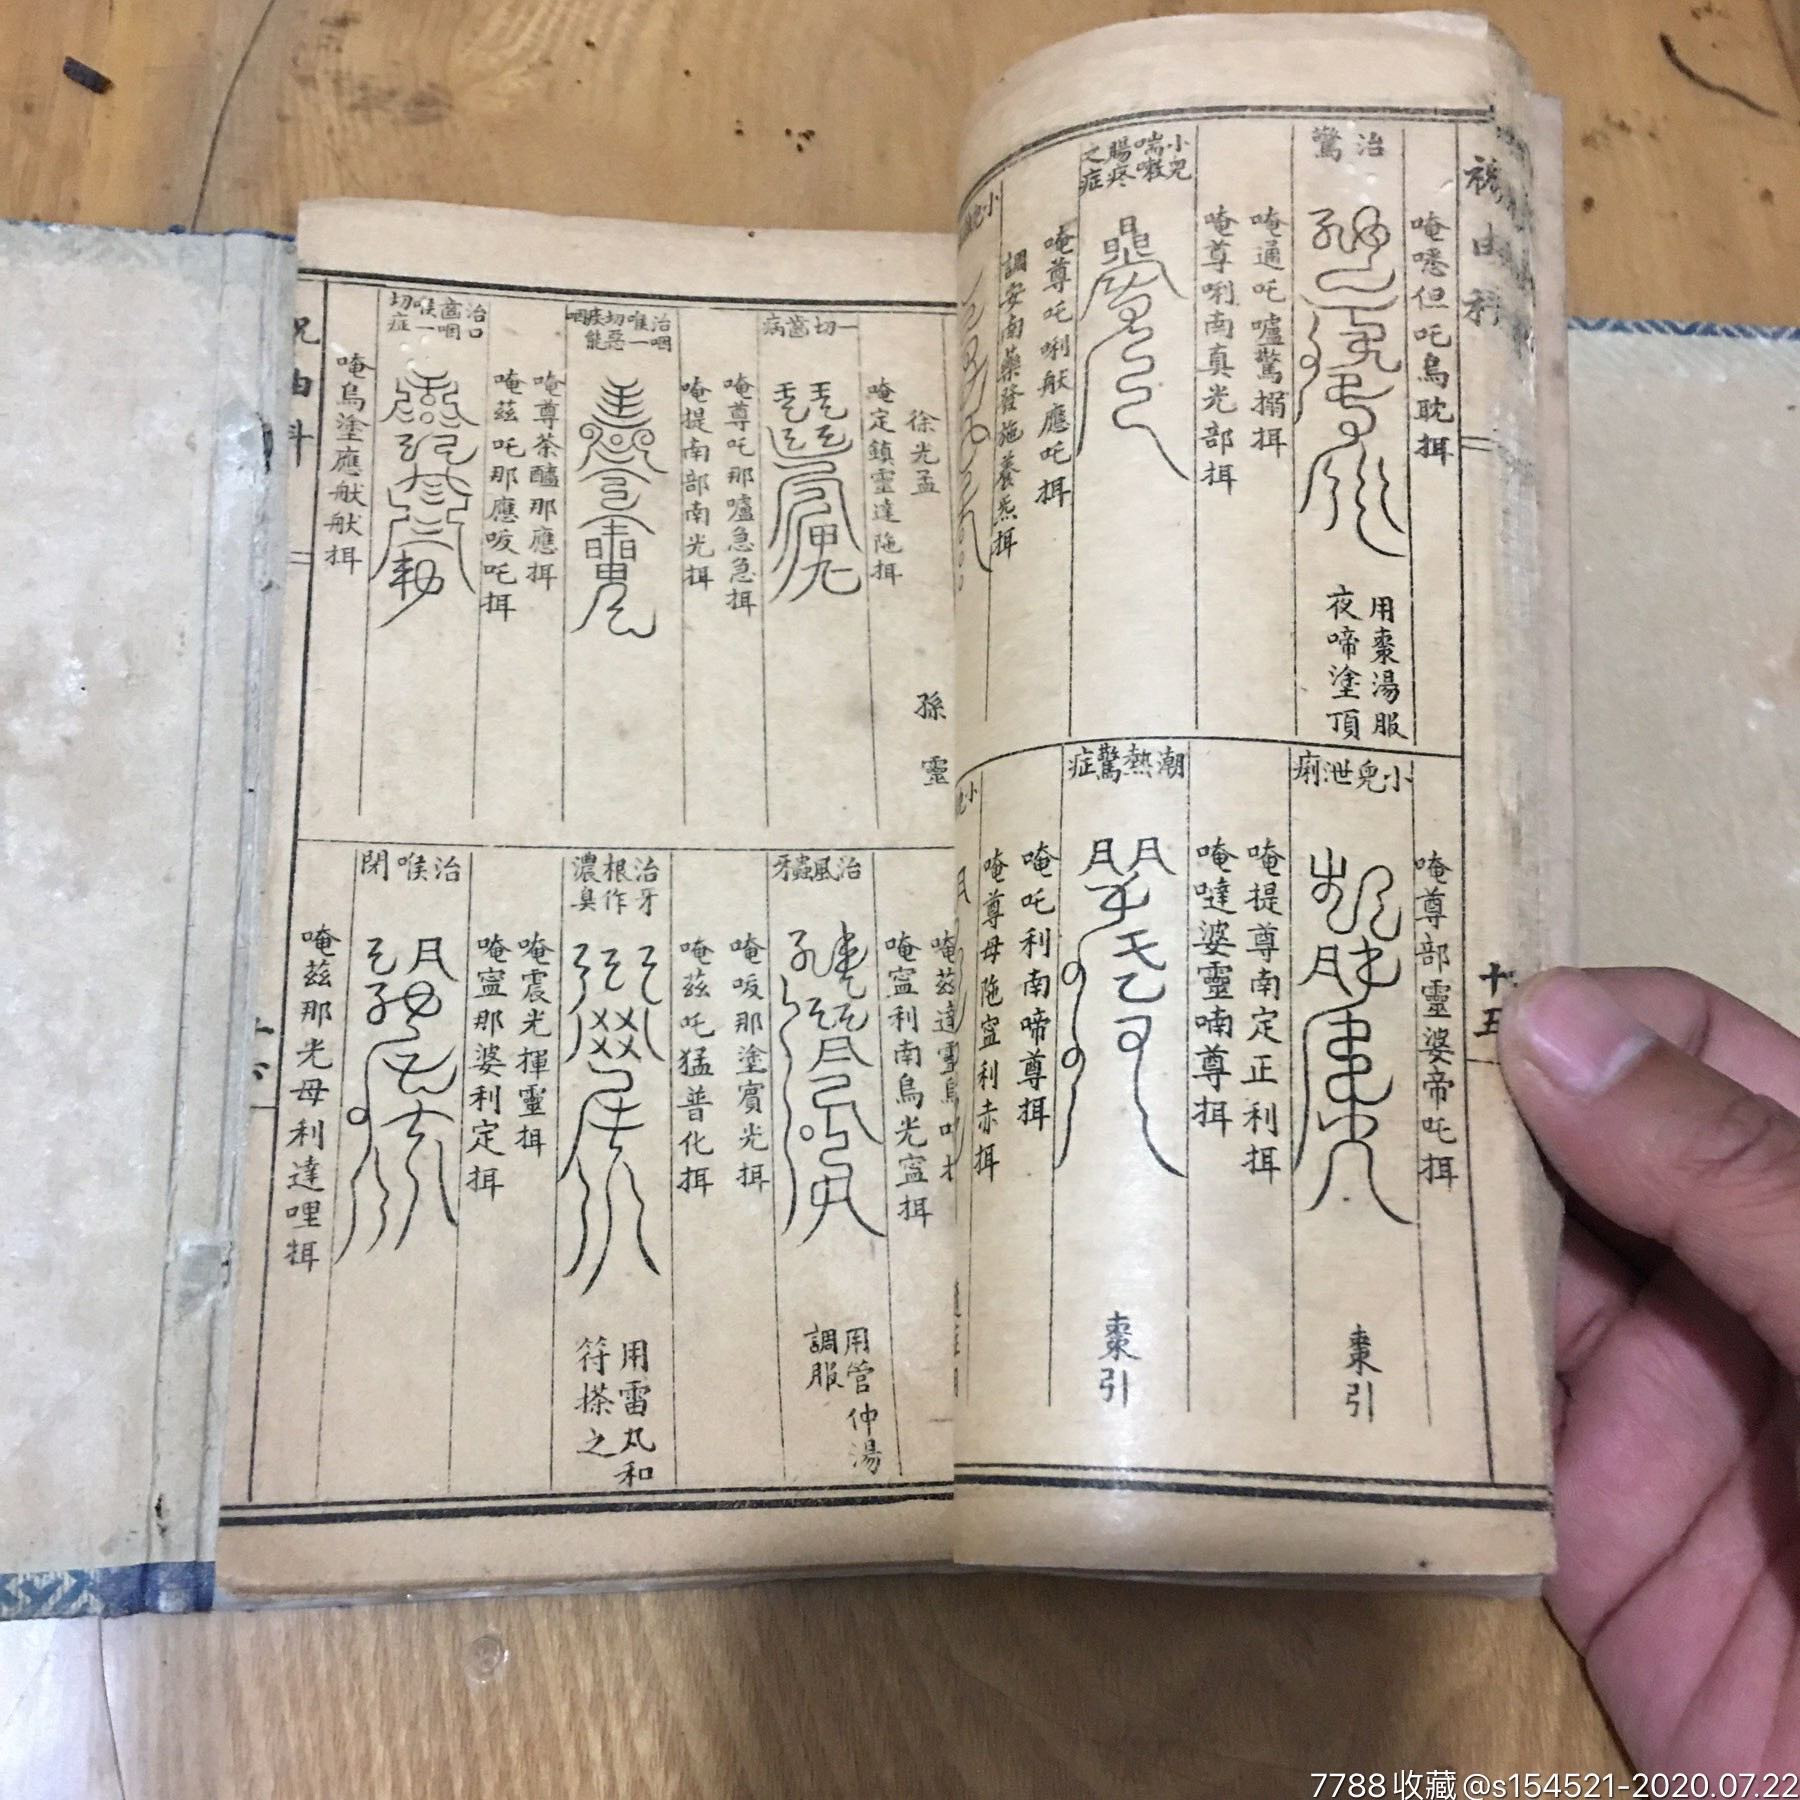 祝由科
十五
唵噁但吒烏耽挕
治驚
用棗湯服
夜啼塗頂
唵通吒嚧驚搦挕
唵尊唎南真光部挕
小兒
喘嗽
腸疼
之症
唵尊吒唎猷應吒挕
調安南藥發施養炁挕
唵尊部靈婆帝吒挕
小兒泄痢
棗引
唵提尊南定正利挕
唵噠婆靈喃尊挕
潮熱驚症
棗引
唵吒利南啼尊挕
唵尊母陁寍利赤挕
徐光孟
孫
靈
唵定鎮靈達陁挕
一切齒病
唵尊吒那嚧急急挕
唵提南部南光挕
治咽
喉一
切惡
唵尊茶醯那應挕
唵茲吒那應哎吒挕
治口
齒咽
喉一
切症
唵烏塗應猷猷挕
唵寍利南烏光寍挕
治風蟲牙
用管仲湯
調服
唵哎那塗賔光挕
唵茲吒猛普化挕
治牙
根作
濃臭
用雷丸和
符搽之
唵震光揮靈挕
唵寍那婆利定挕
治喉閉
唵茲那光母利達哩挕
7788收藏@s154521-2020.07.22